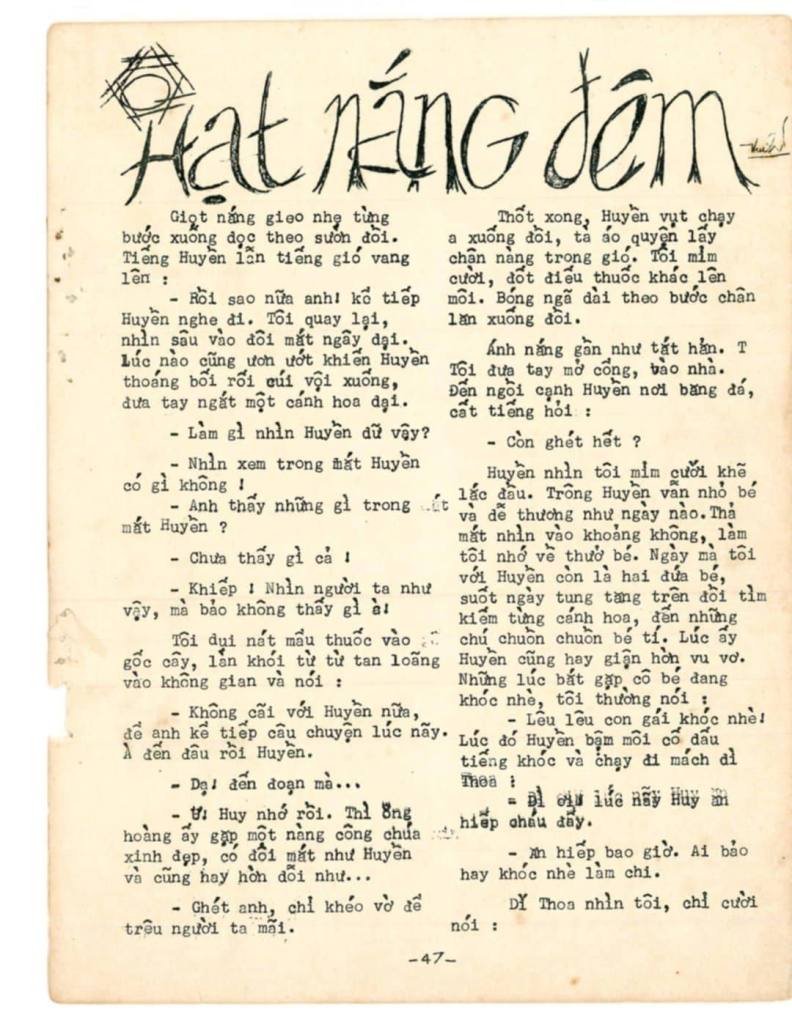 Hạt nắng đêm
Giọt nắng gieo nhẹ từng
bước xuống dọc theo sườn đồi.
Tiếng Huyền lẫn tiếng gió vang
lên :
- Rồi sao nữa anh! kể tiếp
Huyền nghe đi. Tôi quay lại,
nhìn sâu vào đôi mắt ngây dại.
Lúc nào cũng ươn ướt khiến Huyền
thoáng bối rối cúi vội xuống,
đưa tay ngắt một cánh hoa dại.
- Làm gì nhìn Huyền dữ vậy?
- Nhìn xem trong mắt Huyền
có gì không !
- Anh thấy những gì trong
mắt Huyền ?
- Chưa thấy gì cả !
- Khiếp ! Nhìn người ta như
vậy, mà bảo không thấy gì à!
Tôi dụi nát mẩu thuốc vào
gốc cây, lằn khói từ từ tan loãng
vào không gian và nói :
- Không cãi với Huyền nữa,
để anh kể tiếp câu chuyện lúc nãy.
À đến đâu rồi Huyền.
- Dạ! đến đoạn mà...
- Ừ! Huy nhớ rồi. Thì ông
hoàng ấy gặp một nàng công chúa
xinh đẹp, có đôi mắt như Huyền
và cũng hay hờn dỗi như...
- Ghét anh, chỉ khéo vờ để
trêu người ta mãi.
Thốt xong, Huyền vụt chạy
a xuống đồi, tà áo quyện lấy
chân nàng trong gió. Tôi mỉm
cười, đốt điếu thuốc khác lên
môi. Bóng ngã dài theo bước chân
lăn xuống đồi.
Ánh nắng gần như tắt hẳn. T
Tôi đưa tay mở cổng, vào nhà.
Đến ngồi cạnh Huyền nơi băng đá,
cất tiếng hỏi :
- Còn ghét hết ?
Huyền nhìn tôi mỉm cười khẽ
lắc đầu. Trông Huyền vẫn nhỏ bé
và dễ thương như ngày nào. Thả
mắt nhìn vào khoảng không, làm
tôi nhớ về thưở bé. Ngày mà tôi
với Huyền còn là hai đứa bé,
suốt ngày tung tăng trên đồi tìm
kiếm từng cánh hoa, đến những
chú chuồn chuồn bé tí. Lúc ấy
Huyền cũng hay giận hờn vu vơ.
Những lúc bắt gặp cô bé đang
khóc nhè, tôi thường nói :
- Lêu lêu con gái khóc nhè!
Lúc đó Huyền bậm môi cố dấu
tiếng khóc và chạy đi mách dì
Thoa :
- Dì ơi! lúc nãy Huy ăn
hiếp cháu đấy.
- Ăn hiếp bao giờ. Ai bảo
hay khóc nhè làm chi.
Dì Thoa nhìn tôi, chỉ cười
nói :
-47-